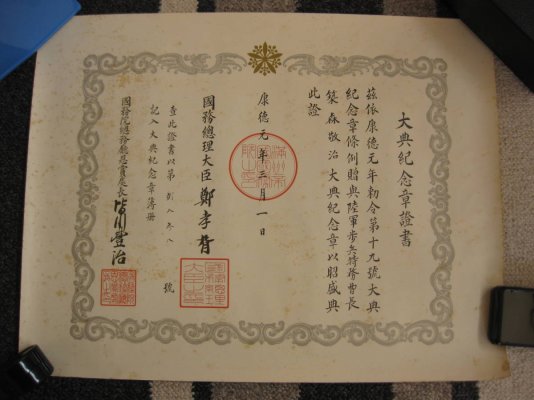 大典紀念章證書
茲依康德元年勅令第十九號大典
紀念章條例贈與陸軍步兵特務曹長
築森敬治大典紀念章以昭盛典
此證
康德元年三月一日
國務總理大臣 鄭孝胥
查此證書以第 號
記入大典紀念章簿冊
國務院總務廳恩賞處長 豐治